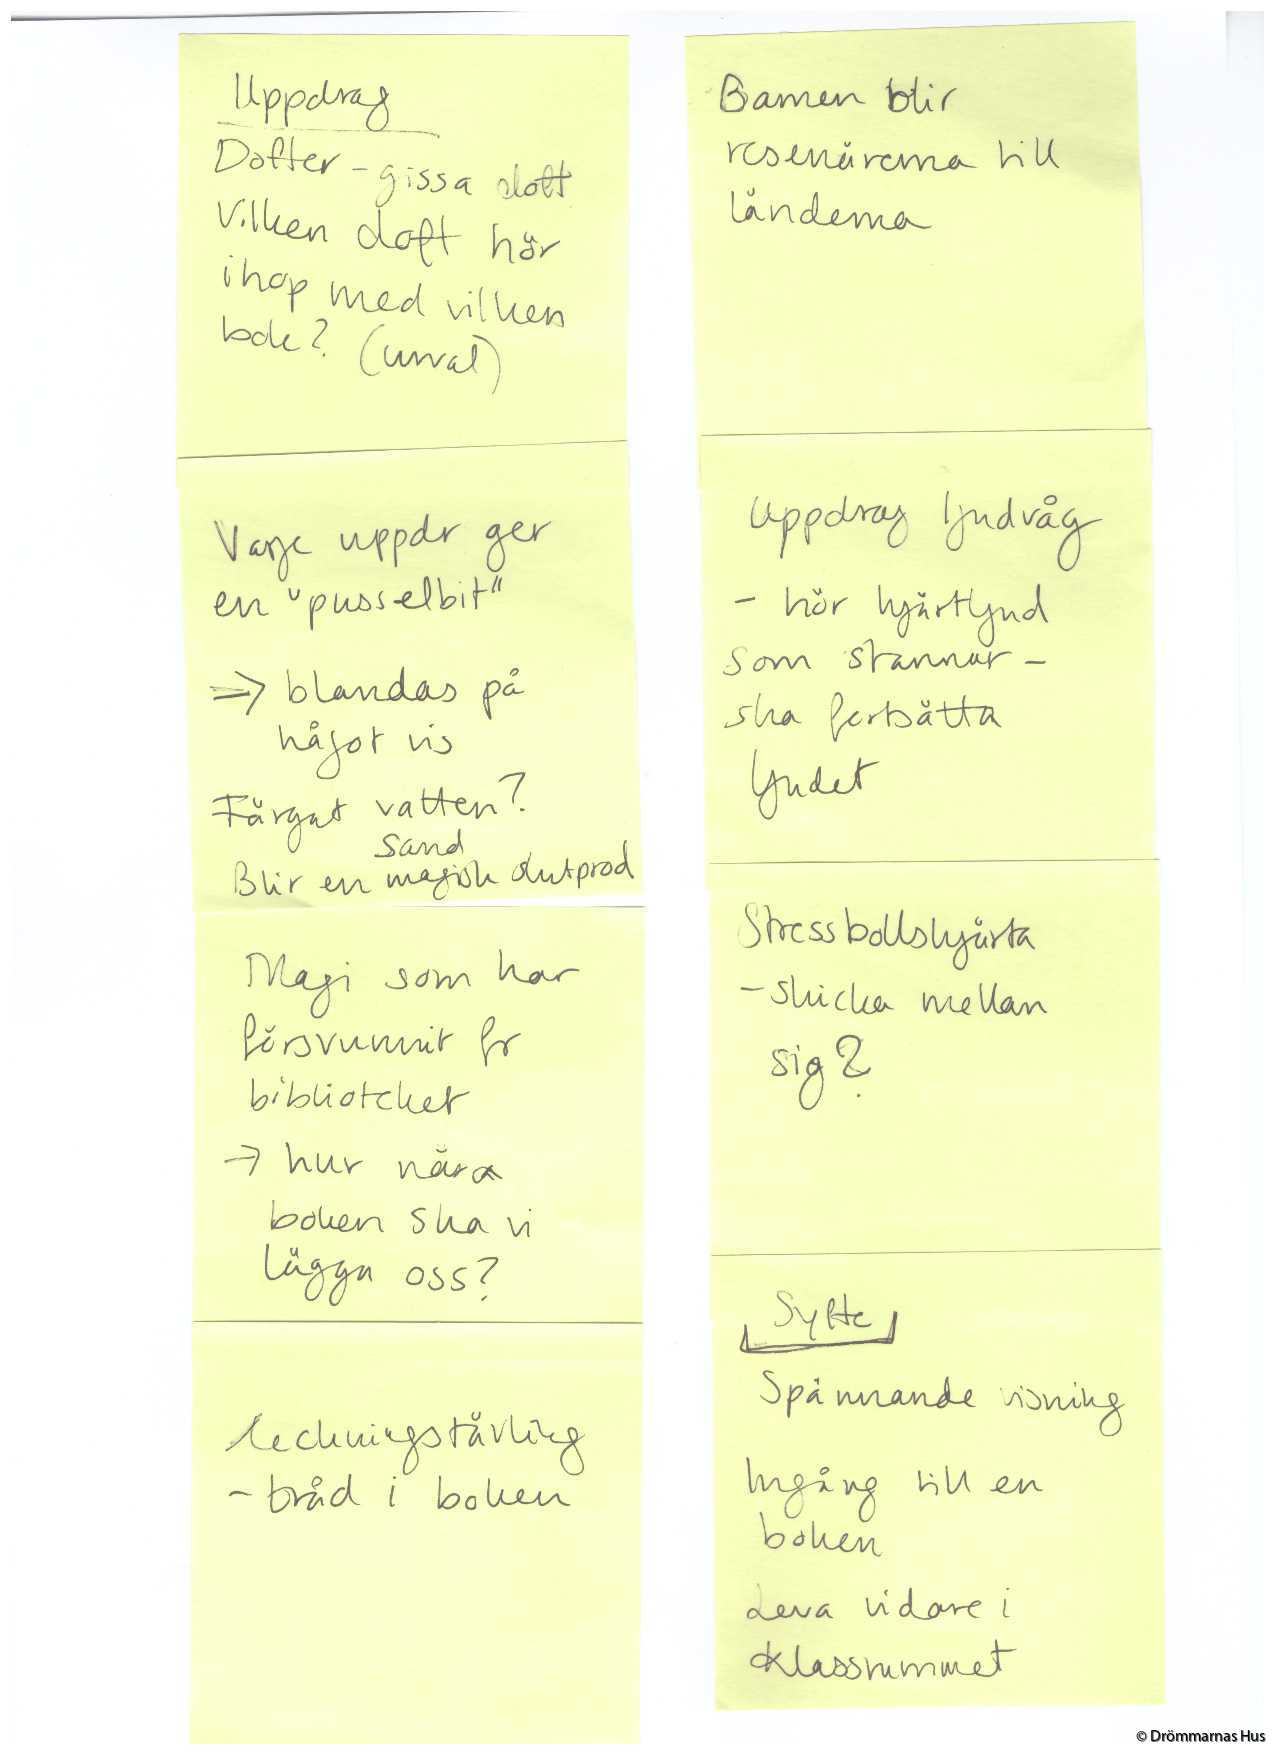 Uppdrag
Dofter - gissa doft
Vilken doft hör
ihop med vilken
bok? (urval)
Varje uppdr ger
en "pusselbit"
⇒ blandas på
något vis
Färgat vatten?
sand
Blir en magisk slutprod
Magi som har
försvunnit fr
biblioteket
→ hur nära
boken ska vi
lägga oss?
Teckningstävling
- tråd i boken
Barnen blir
resenärerna till
länderna
Uppdrag ljudvåg
- hör hjärtljud
som stannar -
ska fortsätta
ljudet
Stressbollshjärta
- skicka mellan
sig?
Syfte
Spännande visning
Ingång till en
boken
Leva vidare i
klassrummet
© Drömmarnas Hus